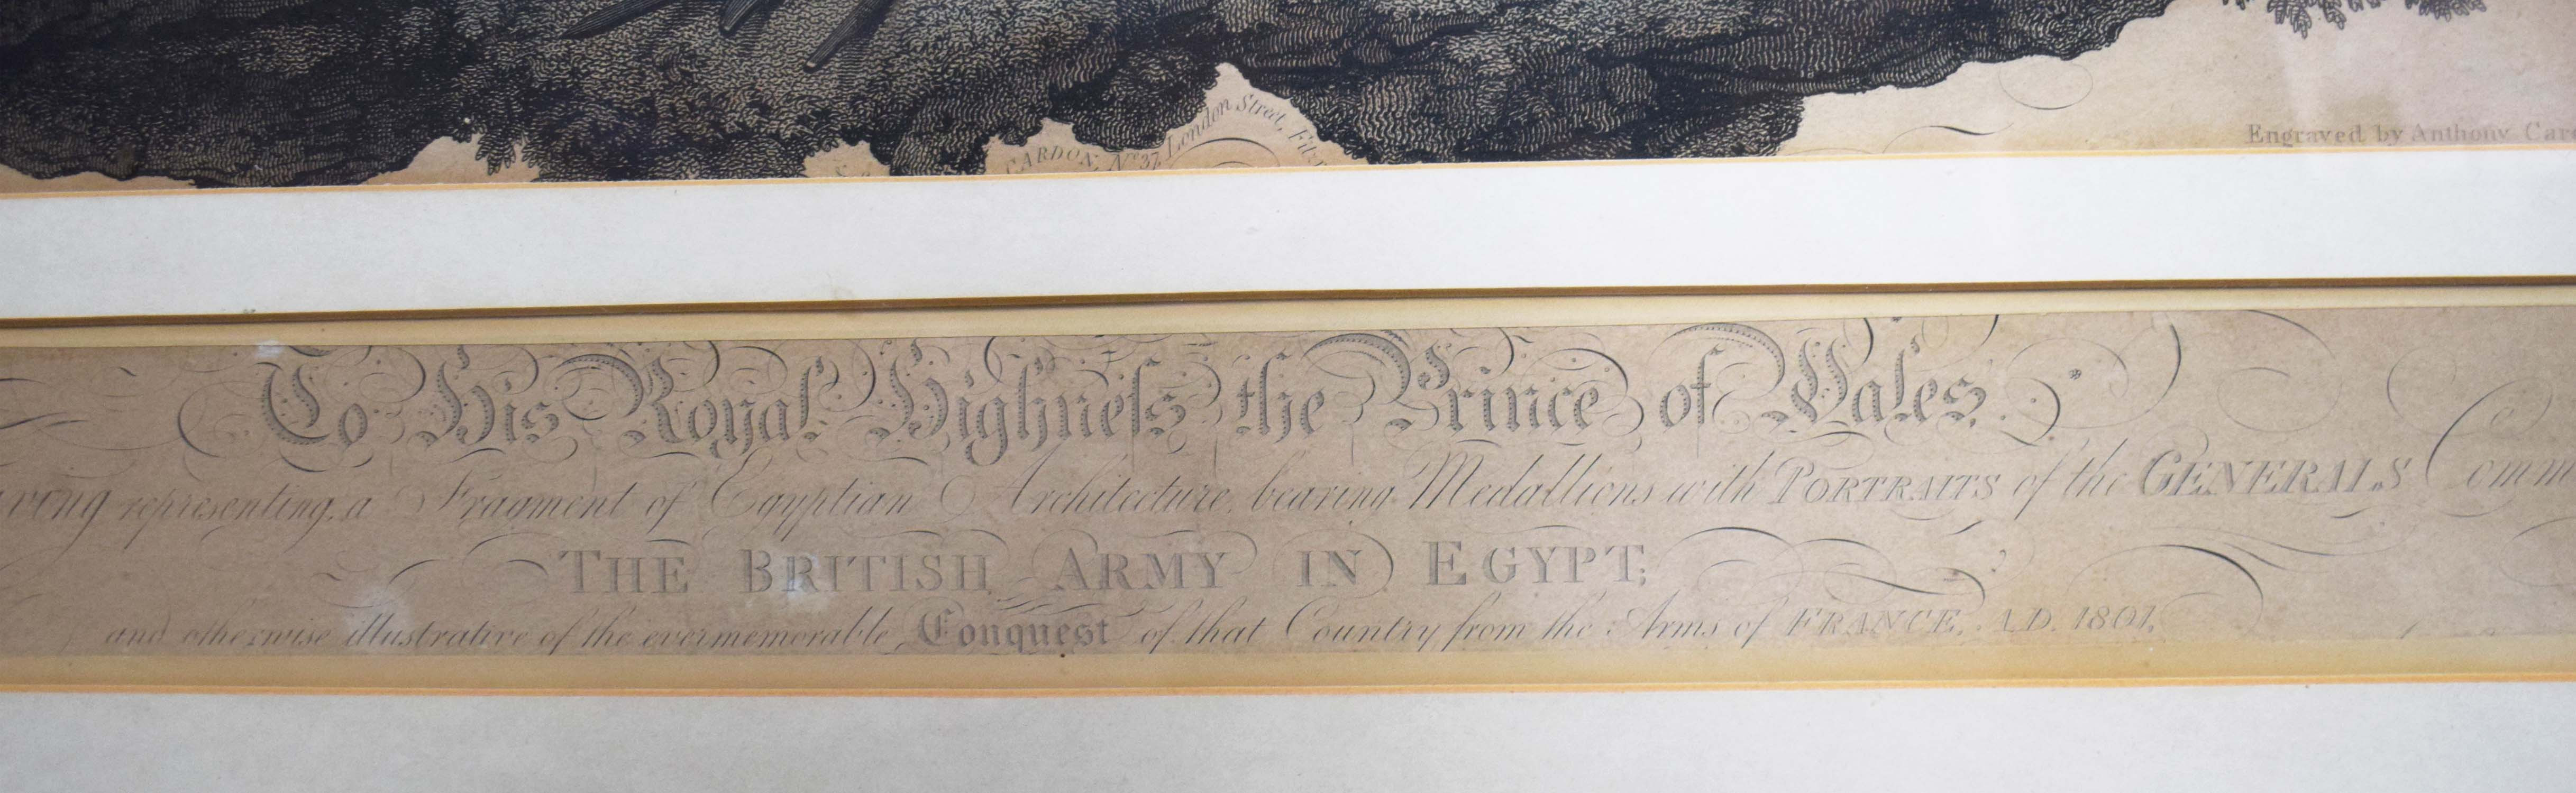 CARDON, No. 37, London Street, Fitz
Engraved by Anthony Car
To His Royal Highneſs the Prince of Wales.
representing a Fragment of Egyptian Architecture, bearing Medallions with PORTRAITS of the GENERALS Comm
THE BRITISH ARMY IN EGYPT;
and otherwise illustrative of the evermemorable Conquest of that Country from the Arms of FRANCE, A.D. 1801.